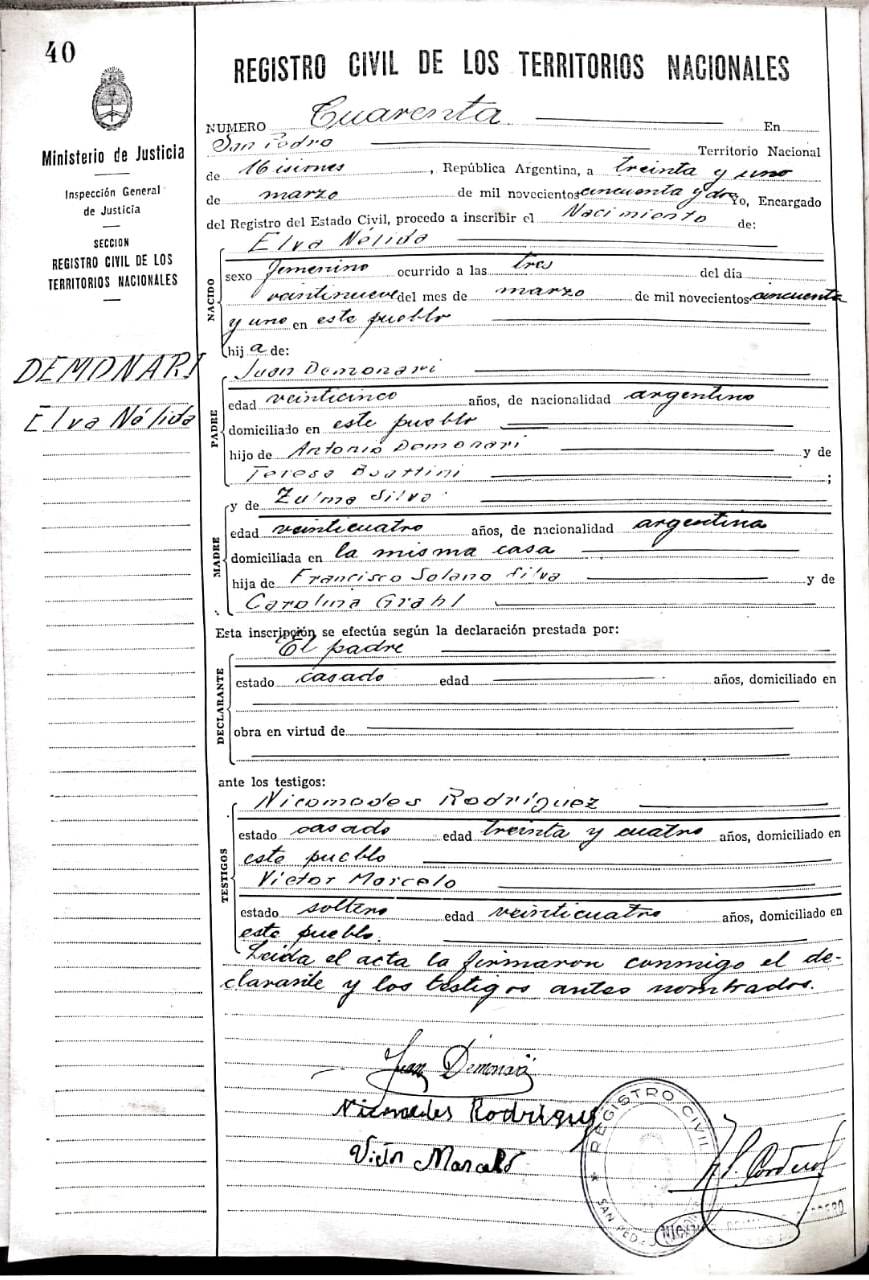 40
REGISTRO CIVIL DE LOS TERRITORIOS NACIONALES
Ministerio de Justicia
Inspección General
de Justicia
SECCION
REGISTRO CIVIL DE LOS
TERRITORIOS NACIONALES
DEMONARI
Elva Nélida
NUMERO Cuarenta En
San Pedro Territorio Nacional
de Misiones, República Argentina, a treinta y uno
de marzo de mil novecientos cincuenta y dos Yo, Encargado
del Registro del Estado Civil, procedo a inscribir el Nacimiento de:
NACIDO
Elva Nélida
sexo femenino ocurrido a las tres del día
veintinueve del mes de marzo de mil novecientos cincuenta
y uno en este pueblo
hija de:
PADRE
Juan Demonari
edad veinticinco años, de nacionalidad argentino
domiciliado en este pueblo
hijo de Antonio Demonari y de
Teresa ;
MADRE
y de Zulma Silva
edad veinticuatro años, de nacionalidad argentina
domiciliada en la misma casa
hija de Francisco Solano Silva y de
Carolina Grahl
Esta inscripción se efectúa según la declaración prestada por:
DECLARANTE
El padre
estado casado edad años, domiciliado en
obra en virtud de
ante los testigos:
TESTIGOS
Nicomedes Rodríguez
estado casado edad treinta y cuatro años, domiciliado en
este pueblo
Victor Marcelo
estado soltero edad veinticuatro años, domiciliado en
este pueblo.
Leida el acta la firmaron conmigo el de-
clarante y los testigos antes nombrados.
Juan Demonari
Nicomedes Rodriguez
Victor Marcelo
REGISTRO CIVIL
SAN PEDRO